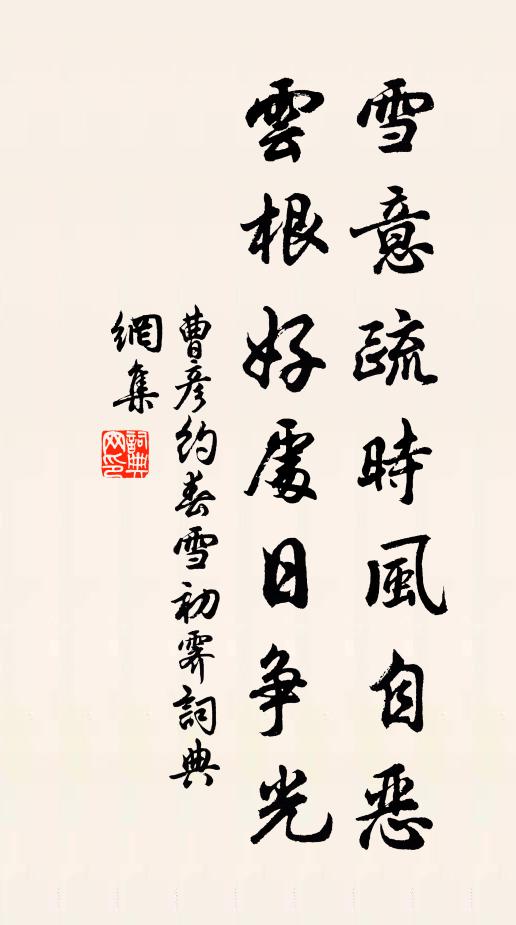 雪意疏時風自惡
雲根好處日爭光
曹彦約春雪初霽詞典
網集
詞典
网印